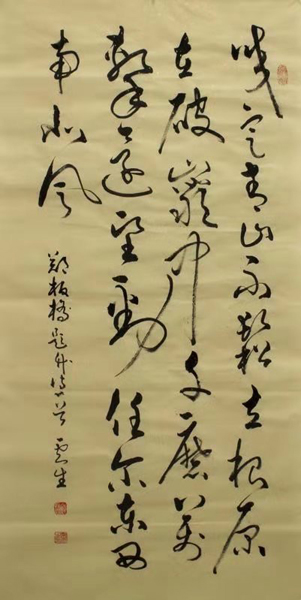 咬定青山不放鬆立根原
在破巖中千磨萬
擊還堅勁任尔東西
南北風
鄭板橋題竹詩一首 雲生